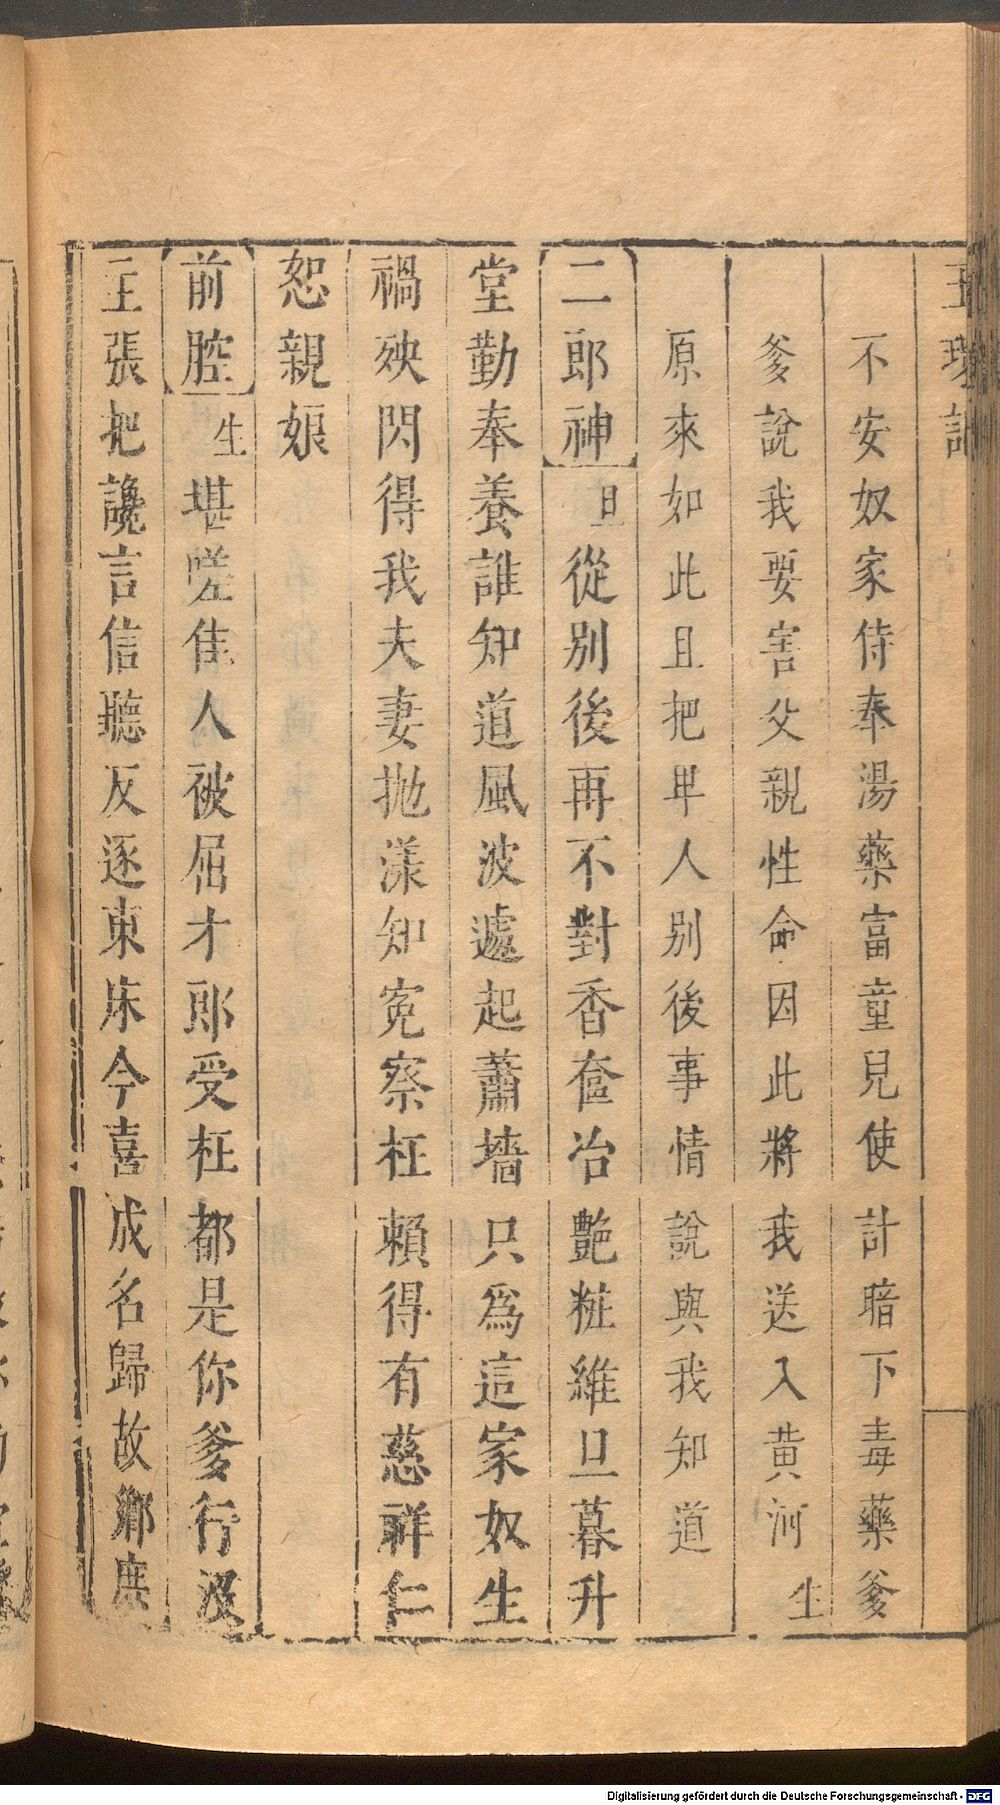 玉環記
不安奴家侍奉湯藥富童兒使計暗下毒藥爹
爹說我要害父親性命因此將我送入黃河生
原來如此且把卑人別後事情說與我知道
二郎神旦從別後再不對香奩冶艷粧維旦暮升
堂勤奉養誰知道風波遽起蕭墻只為這家奴生
禍殃閃得我夫妻拋漾知寃察枉賴得有慈祥仁
恕親娘
前腔生堪嗟佳人被屈才郎受枉都是你爹行沒
主張把讒言信聽反逐東床今喜成名歸故鄉庶
Digitalisierung gefördert durch die Deutsche Forschungsgemeinschaft - DFG